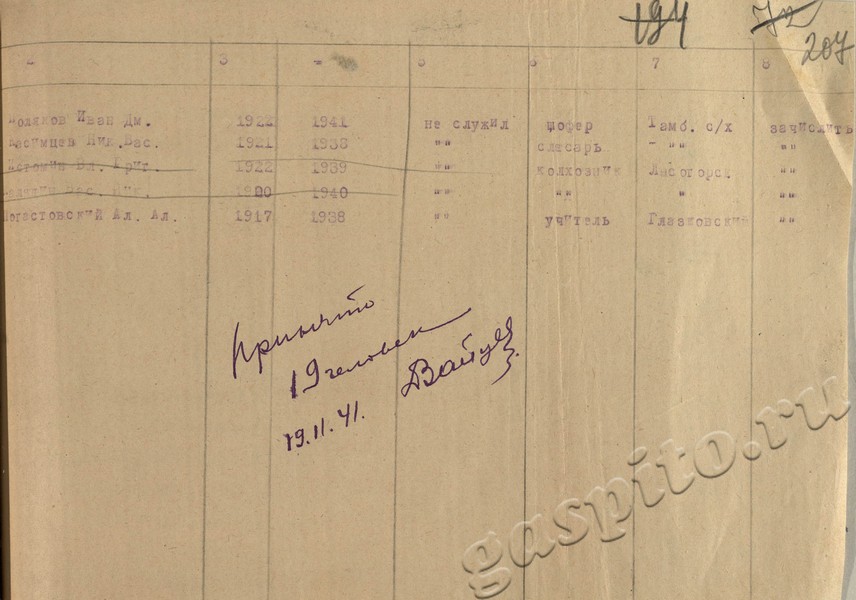 194 72
207
2 3 - 5 6 7 8
Поляков Иван Дм. 1922 1941 не служил шофер Тамб. с/х зачислить
Пик.Вас. 1921 1938 "" слесарь - "" ""
Вл. Григ. 1922 1939 "" колхозник Лысогорск ""
Вас. Ник. 1920 1940 "" "" " ""
Богастовский Ал. Ал. 1917 1938 "" учитель Глазковский ""
Принято
19 человек
19.11.41.
gaspito.ru